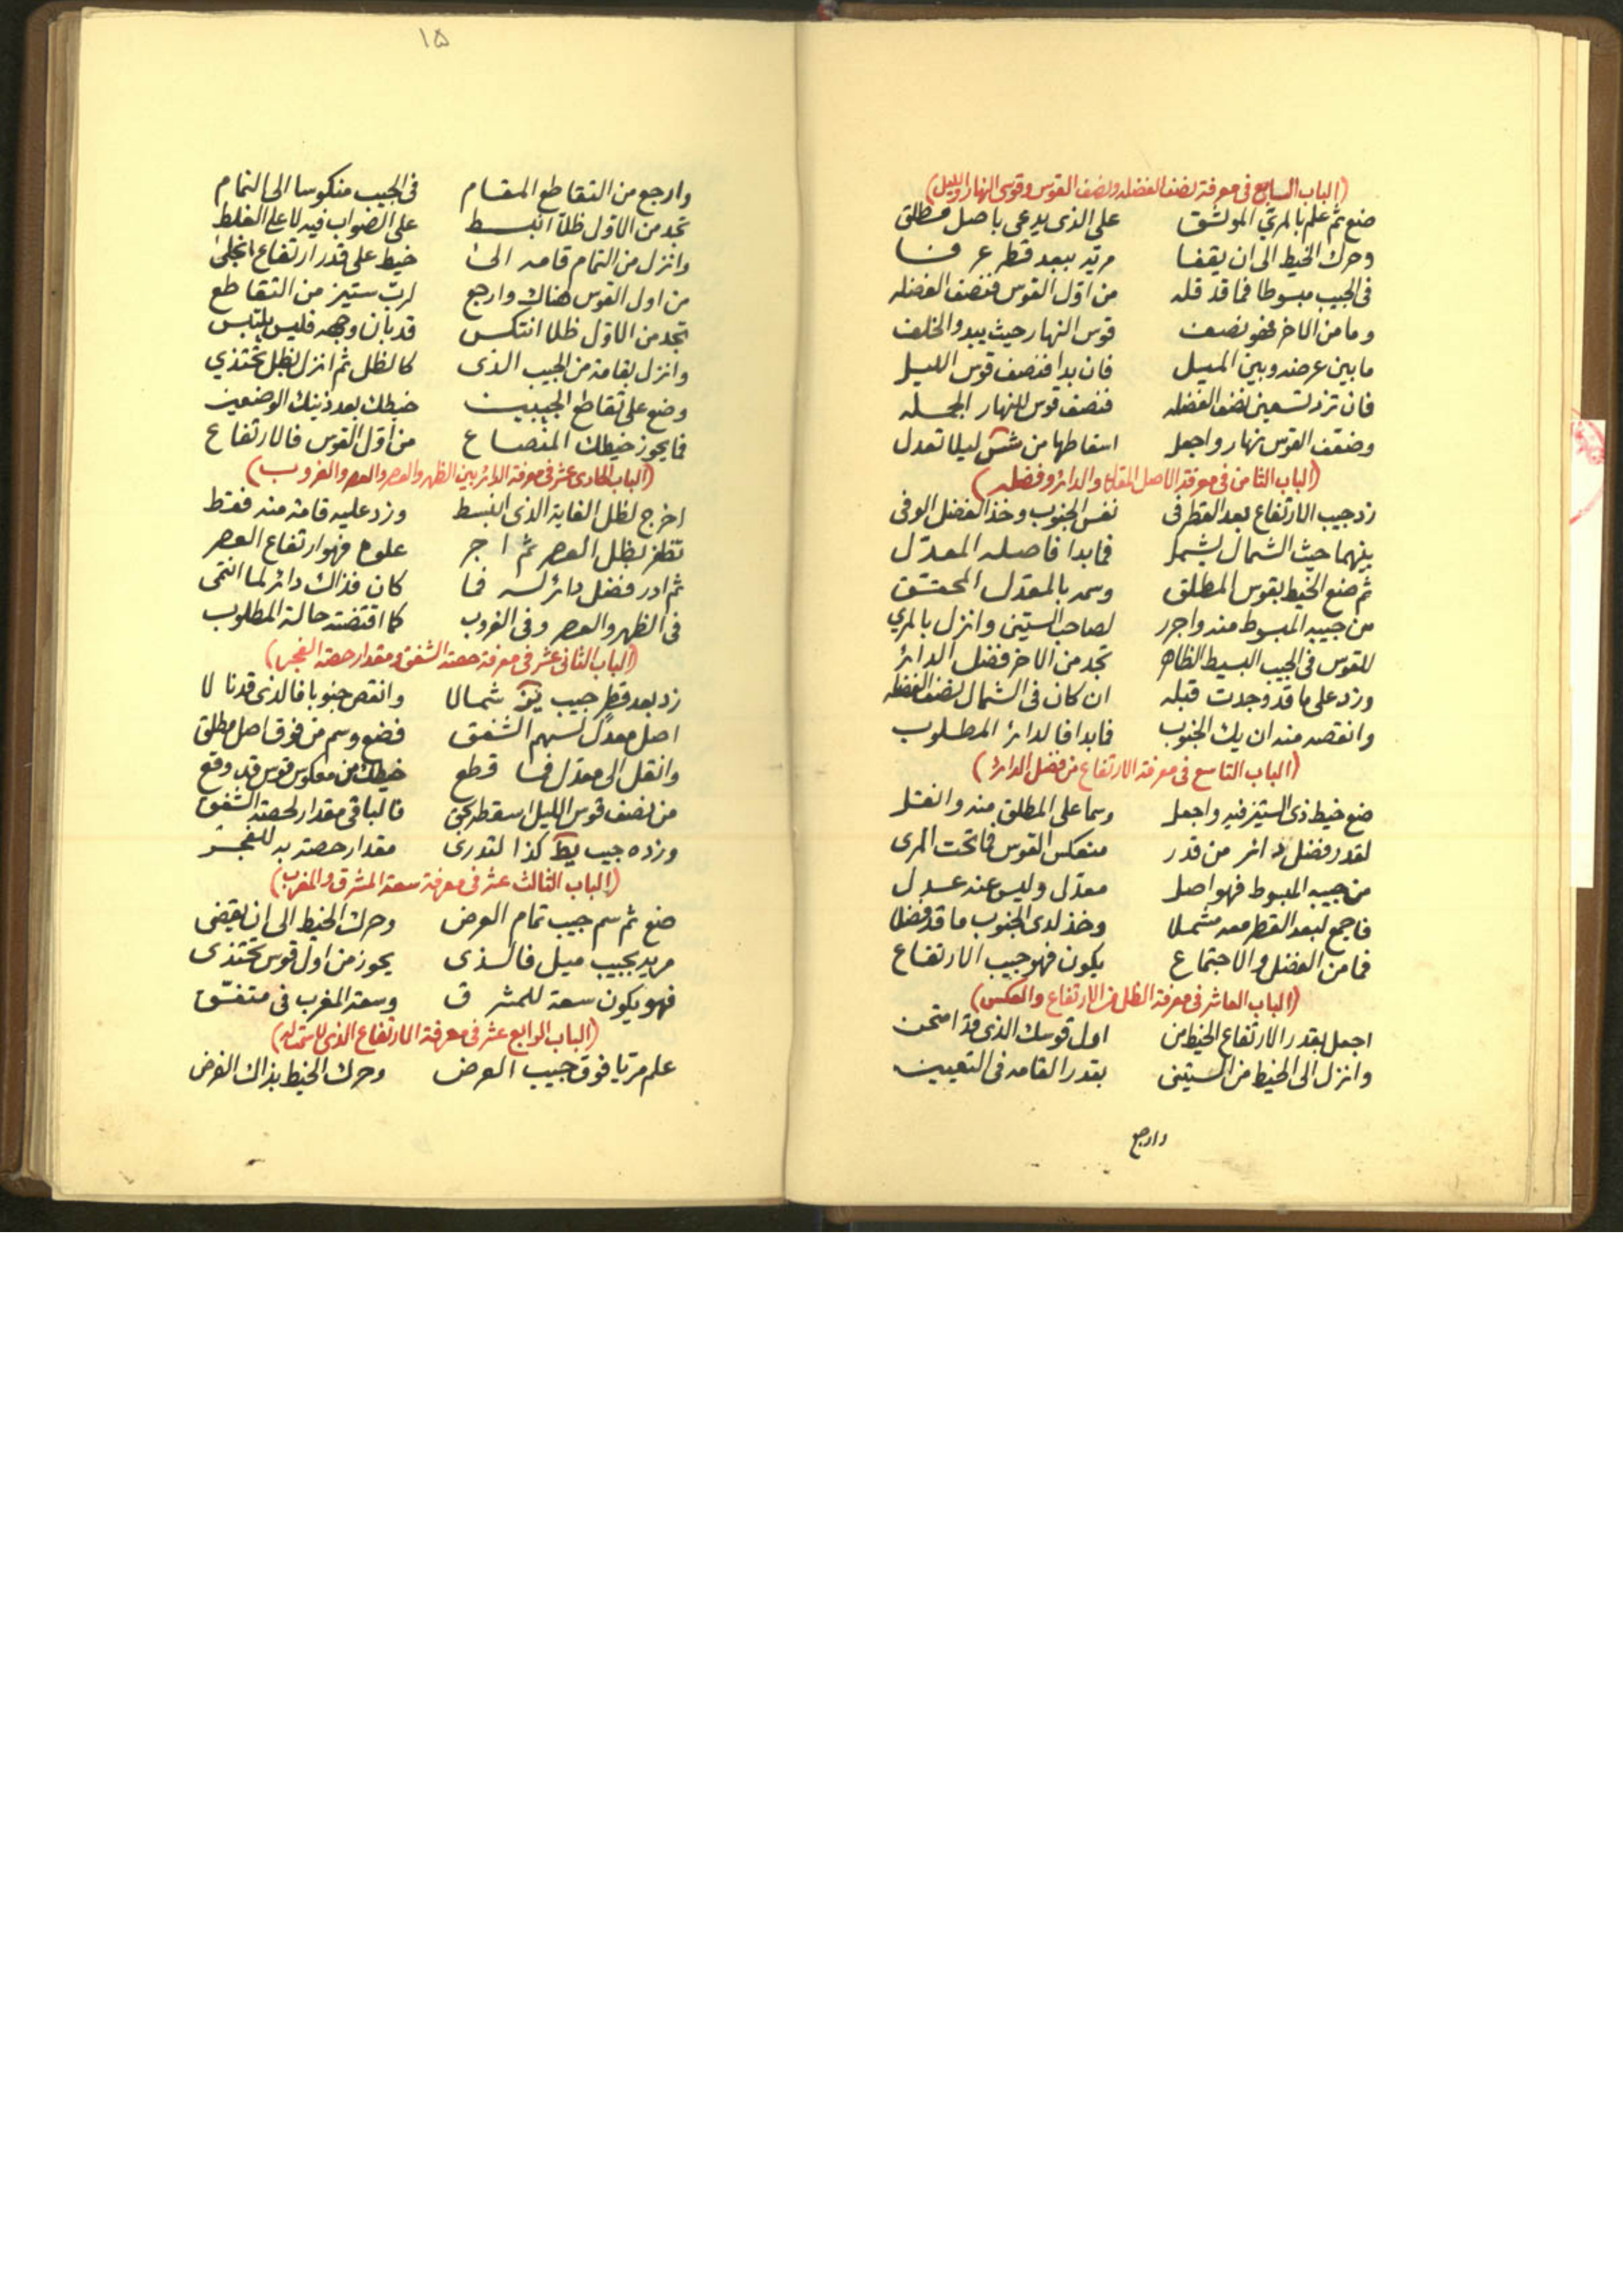 (الباب السابع فى معرفة نصف الفضله ونصف القوس وقوسى النهار والليل)
ضع ثم علم بالمرئ الموثق على الذى يدعى باصل مطلق
وحرك الخيط الى ان يقفا مريه ببعد قطر عرفا
فى الجيب مبسوطا فما قد قله من اول القوس فنصف الفضله
وما من الاخر فهو نصف قوس النهار حيث يبدو الخلف
ما بين عرضه وبين الميل فان بدا فنصف قوس الليل
فان تزد تسعين نصف الفضله فنصف قوس للنهار الجمله
وضعف القوس نهار واجعل اسقاطها من شس ليلا تعدل
(الباب الثامن فى معرفة الاصل المعدل والدائر وفضله)
زد جيب الارتفاع بعد القطر فى نفس الجنوب وخذ الفضل الوفى
بينهما حيث الشمال يشمل فما بدا فاصله المعدّل
ثم ضع الخيط بقوس المطلق وسمه بالمعدل المحقق
من جيبه المبسوط منه واجرر لصاحب الستين وانزل بالمري
للقوس فى الجيب البسيط الظاهر تجد من الاخر فضل الدائر
وزد على ما قد وجدت قبله ان كان فى الشمال نصف الفضله
وانقصه منه ان يك الجنوب فما بدا فالدائر المطلوب
(الباب التاسع فى معرفة الارتفاع من فضل الدائر)
ضع خيط ذى الستين فيه واجعل وسما على المطلق منه وانقل
لقدر فضل دائر من قدر منعكس القوس فما تحت المرى
من جيبه المبسوط فهو اصل معدّل وليس عنه عدل
فاجمع لبعد القطر معه مشملا وخذ لدى الجنوب ما قد فضلا
فما من الفضل والاجتماع يكون فهو جيب الارتفاع
(الباب العاشر فى معرفة الظل من الارتفاع والعكس)
اجعل بقدر الارتفاع الخيط من اول قوسك الذى قد امتحن
وانزل الى الخيط من الستين بقدر القامه فى التعيين
وارجع
١٥
وارجع من التقاطع المقام فى الجيب منكوسا الى التمام
تجد من الاول ظلا انبسط على الصواب فيه لا على الغلط
وانزل من التمام قامه الى خيط على قدر ارتفاع انجلى
من اول القوس هناك وارجع لرب ستين من التقاطع
تجد من الاول ظلا انتكس قد بان وجهه فليس يلتبس
وانزل بقامة من الجيب الذى كالظل ثم انزل بظل تحتذي
وضع على تقاطع الجيبين خيطك بعد ذينك الوضعين
فما يحوز خيطك المنصاع من اول القوس فالارتفاع
(الباب الحادى عشر فى معرفة الدائر بين الظهر والعصر والعصر والغروب)
اخرج لظل الغاية الذى انبسط وزد عليه قامة منه فقط
تظفر بظل العصر ثم اجر علوه فهو ارتفاع العصر
ثم ادر فضل دائر له فما كان فذاك دائر لما انتمى
فى الظهر والعصر وفى الغروب كما اقتضته حالة المطلوب
(الباب الثانى عشر فى معرفة حصة الشفق ومقدار حصة الفجر)
زد بعد قطر جيب يز شمالا وانقص جنوبا فالذى قد نالا
اصل معدّل لسهم الشفق فضع وسم من فوق اصل مطلق
وانقل الى معدّل فما قطع خيطك من معكوس قوس قد وقع
من نصف قوس الليل اسقطه يحق فالباقى مقدار لحصة الشفق
وزده جيب يط كذا لتدرى مقدار حصته به للفجر
(الباب الثالث عشر فى معرفة سعة المشرق والمغرب)
ضع ثم سم جيب تمام العرض وحرك الخيط الى ان يقضى
مريه بجيب ميل فالذى يحوز من اول قوس تحتذى
فهو يكون سعة للمشرق وسعة المغرب فى متفق
(الباب الرابع عشر فى معرفة الارتفاع الذى لا سمت له)
علم مريا فوق جيب العرض وحرك الخيط بذاك الغرض